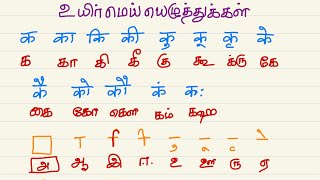 உயிர்மெய்யெழுத்துக்கள்
क का कि की कु कू कृ के
க கா கி கீ கு கூ க்ரு கே
कै को कौ कं कः
கை கோ கௌ கம் கஹ
अ ஆ இ ஈ உ ஊ ரு ஏ